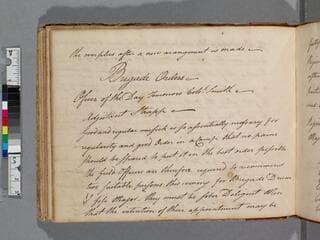 the surplus after a new arangment is made
Brigade Orders
Officer of the Day Tomorrow Colo. Smith
Adjutant Knapp
Good and regular musick is so essentially necessary for
regularity and good Order in a Camp that no pains
should be spared to put it on the best order possible
the field Officers are therefore requested to recommend
two suitable persons this evening for Brigade Drum
& fife Major they must be sober Diligent Men
that the intention of their appointment may be